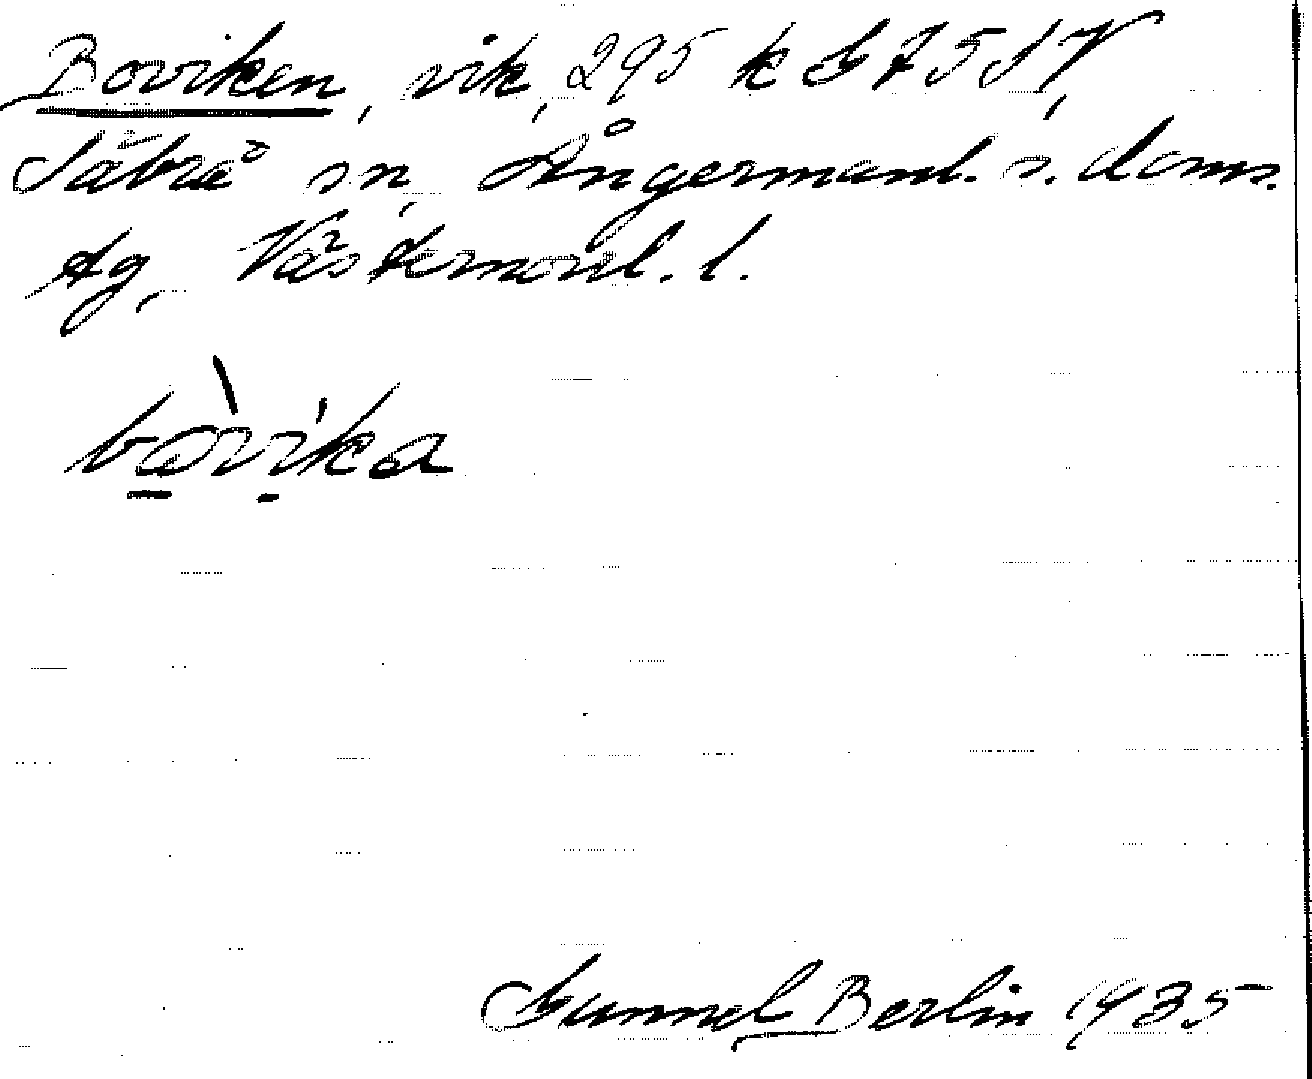 Boviken, vik, 295 k G 7 5 SV,
Säbrå sn, Ångermanl. s. doms.
tg, Västernorrl. l.
bòvika
Gunnel Berlin 1935